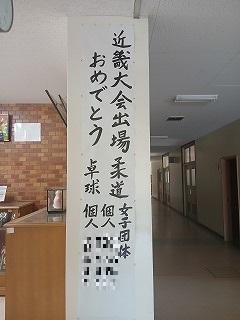 近畿大会出場
おめでとう
柔道 女子団体
個人
卓球 個人